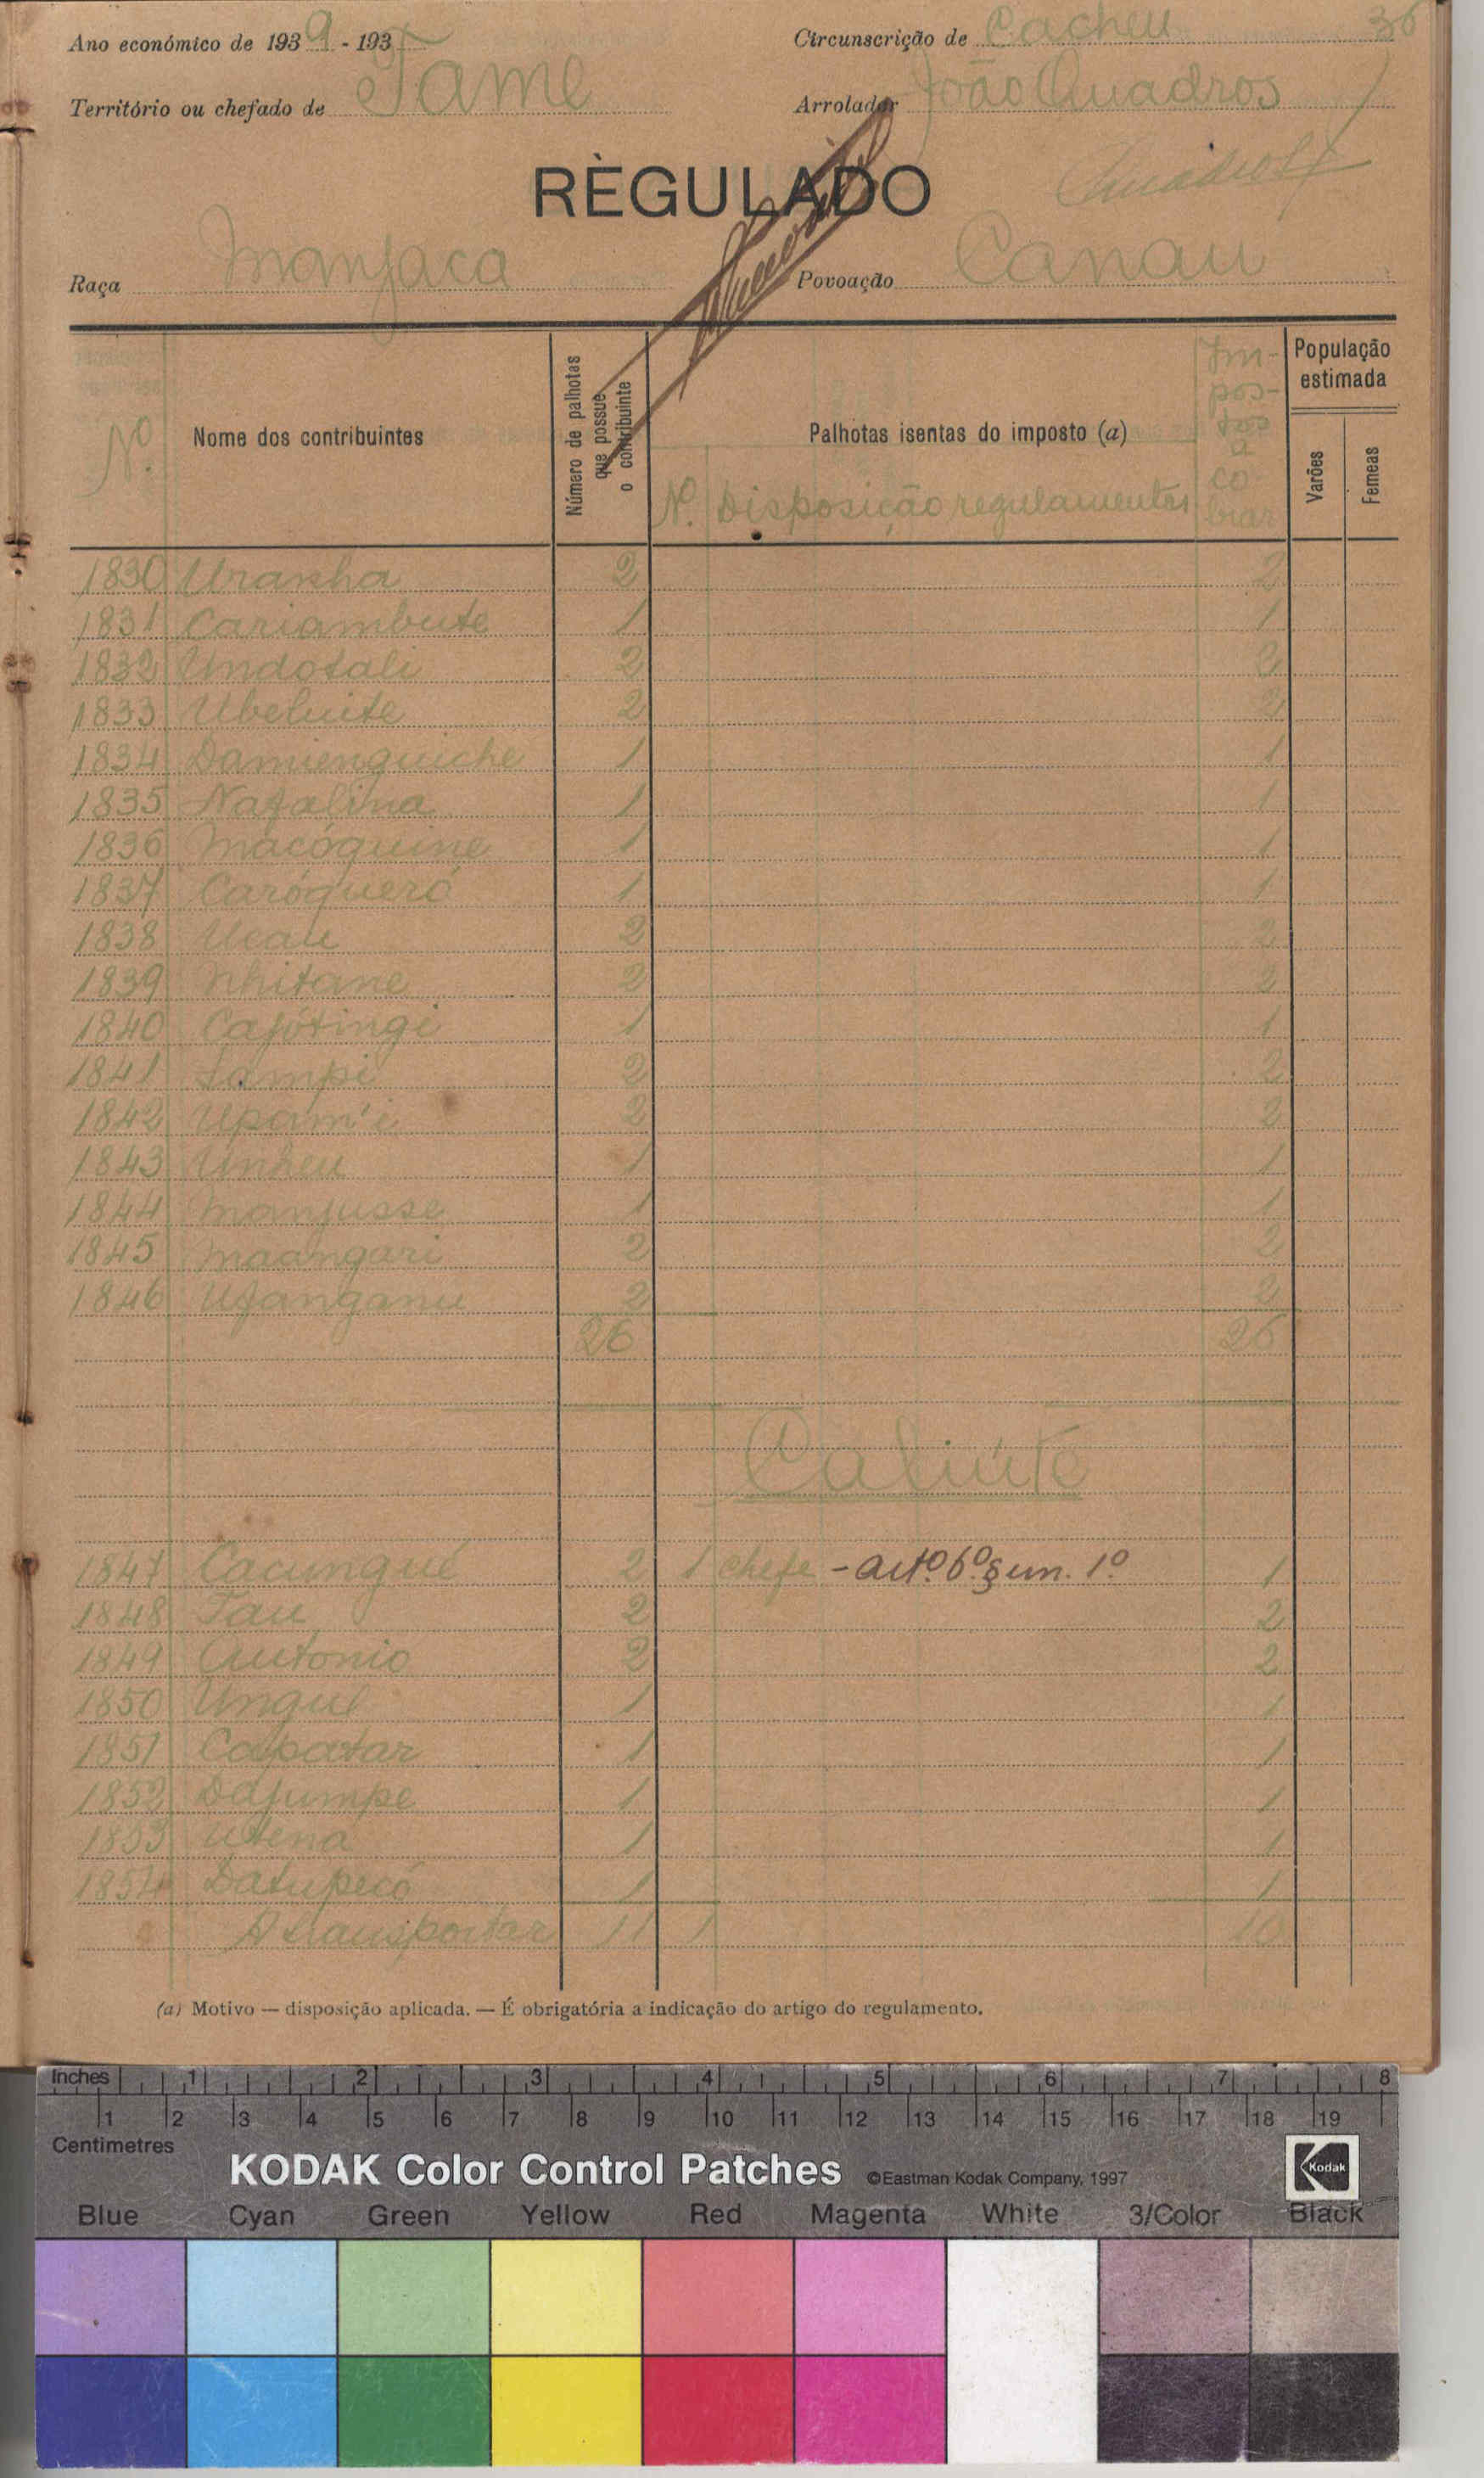 Ano económico de 1939 - 193
Circunscrição de Cacheu 36
Território ou chefado de Tame
Arrolador João Quadros
RÈGULADO
Raça Manjaca
Povoação Canau
N.º
Nome dos contribuintes
Número de palhotas que possue o contribuinte
Palhotas isentas do imposto (a)
N.º Disposição regulamentar
Impostos a cobrar
População estimada
Varões
Femeas
1830 Uranha 2 2
1831 Cariambute 1 1
1832 Undotali 2 2
1833 Ubeluite 2 2
1834 Damienguiche 1 1
1835 Natalina 1 1
1836 Macóguine 1 1
1837 Caróqueró 1 1
1838 Ucau 2 2
1839 Nhitane 2 2
1840 Cajótingi 1 1
1841 Sampi 2 2
1842 Upam'i 2 2
1843 Unheu 1 1
1844 Manjusse 1 1
1845 Maangari 2 2
1846 Ufanganu 2 2
26 26
Caliúte
1847 Cacungué 2 1 chefe - artº. 6º § un. 1º 1
1848 Tau 2 2
1849 Antonio 2 2
1850 Ungul 1 1
1851 Capatar 1 1
1852 Dajumpe 1 1
1853 Utena 1 1
1854 Datupecó 1 1
A transportar 11 1 10
(a) Motivo — disposição aplicada. — É obrigatória a indicação do artigo do regulamento.
Inches 1 2 3 4 5 6 7 8
1 2 3 4 5 6 7 8 9 10 11 12 13 14 15 16 17 18 19
Centimetres
KODAK Color Control Patches ©Eastman Kodak Company, 1997 Kodak
Blue Cyan Green Yellow Red Magenta White 3/Color Black